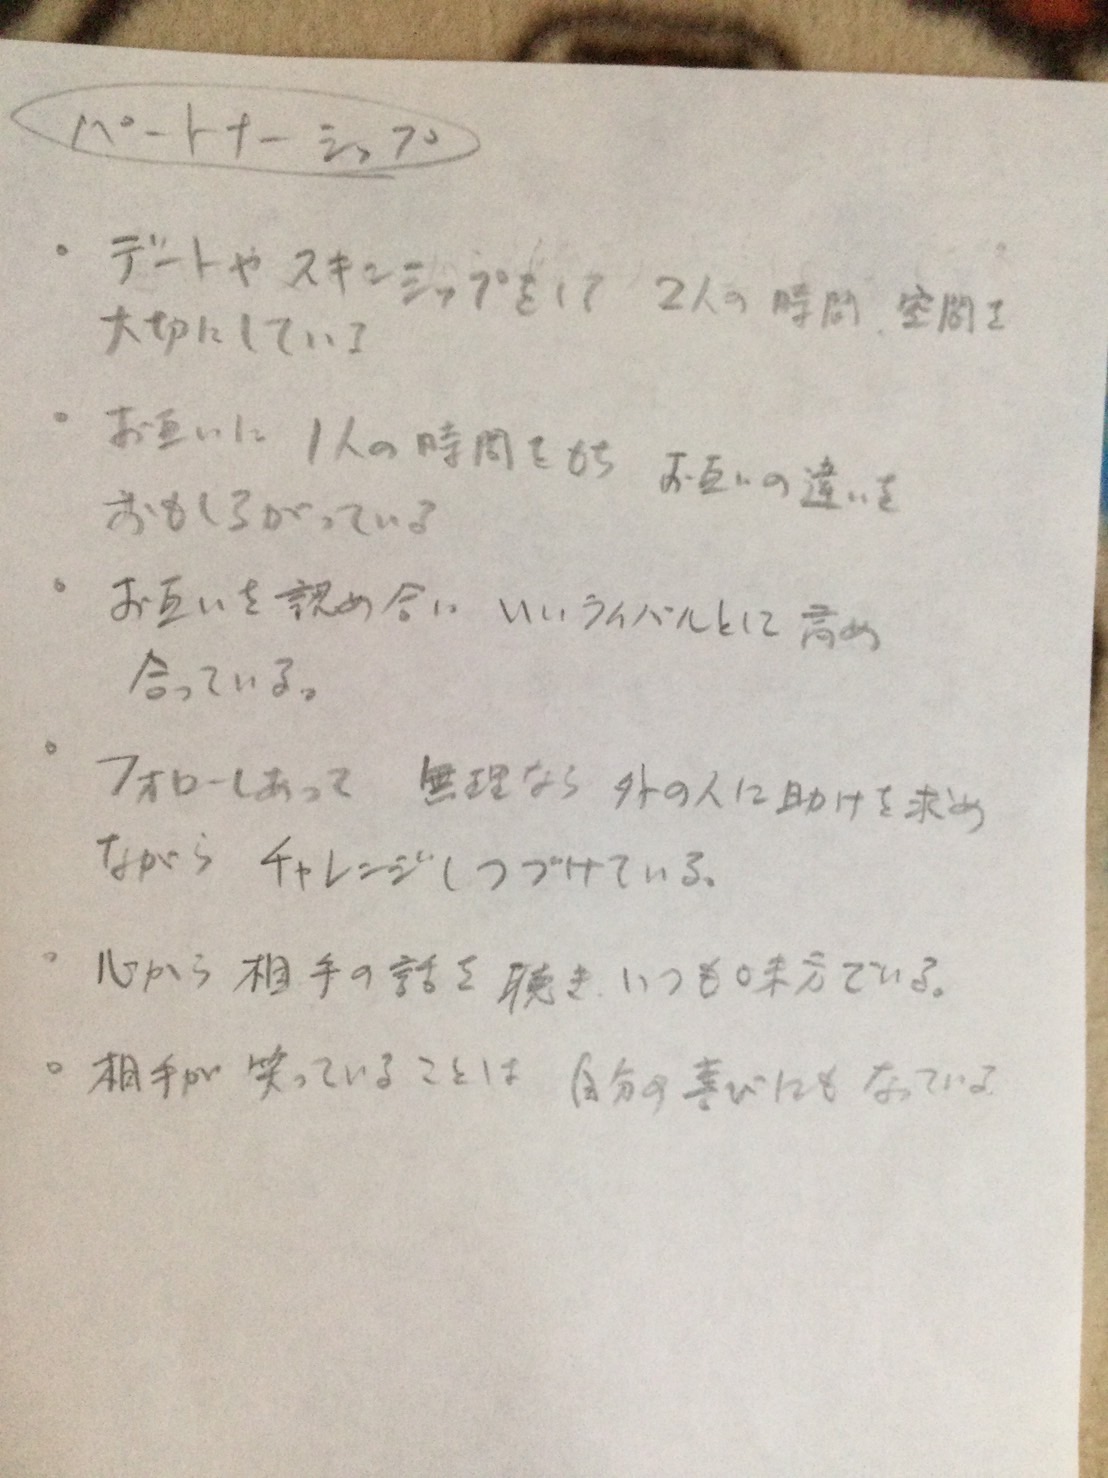 パートナーシップ
・デートやスキンシップをして 2人の時間、空間を
大切にしている
・お互いに 1人の時間をもち お互いの違いを
おもしろがっている
・お互いを認め合い いいライバルとして高め
合っている。
・フォローしあって 無理なら 外の人に助けを求め
ながら チャレンジしつづけている。
・心から相手の話を聴き、いつも味方でいる。
・相手が笑っていることは 自分の喜びにもなっている